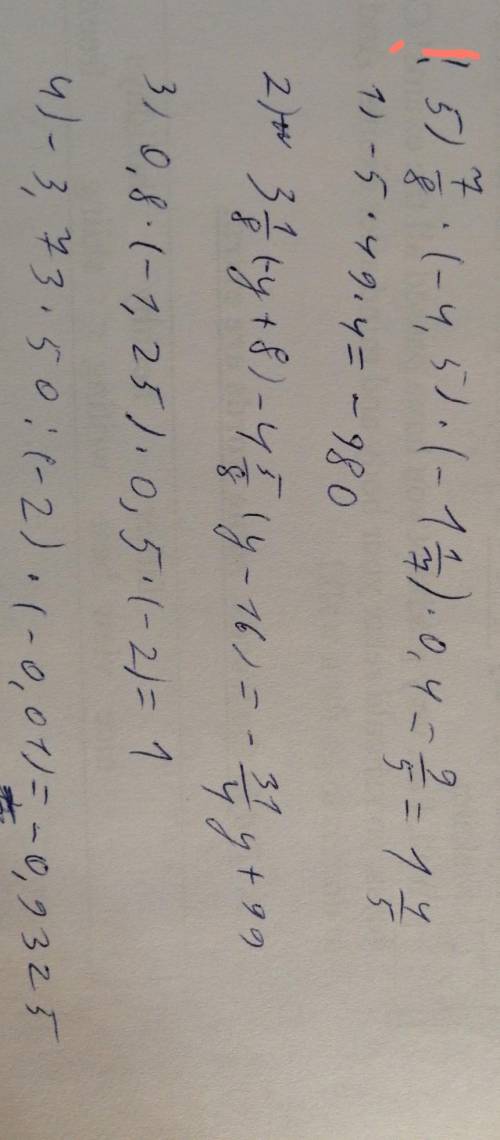 ! 5) 7/8 · (-4,5) · (-1 1/7) · 0,4 = 9/5 = 1 4/5
1) -5 · 49 · 4 = -980
2) 3 1/8 (-y + 8) - 4 5/8 (y - 16) = - 31/4 y + 99
3) 0,8 · (-1,25) · 0,5 · (-2) = 1
4) -3,73 · 50 : (-2) · (-0,01) = -0,9325